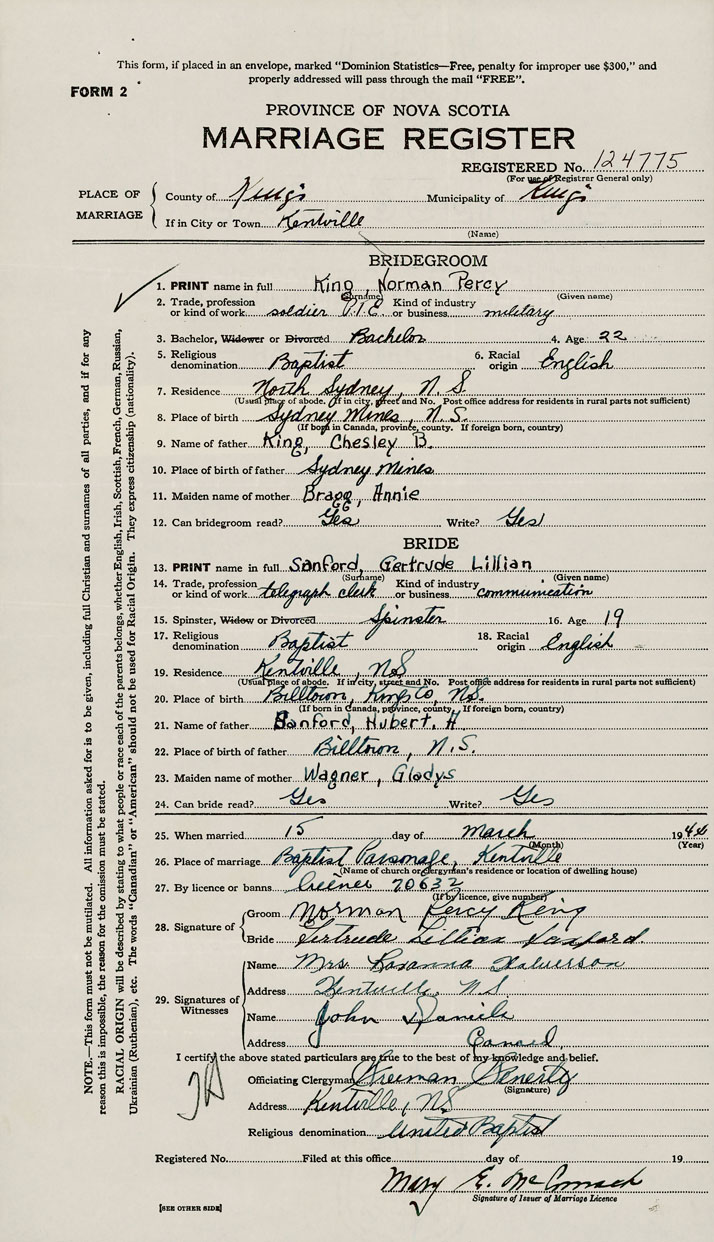 This form, if placed in an envelope, marked "Dominion Statistics—Free, penalty for improper use $300," and
properly addressed will pass through the mail "FREE".
FORM 2
PROVINCE OF NOVA SCOTIA
MARRIAGE REGISTER
REGISTERED No. 124775
(For use of Registrar General only)
PLACE OF MARRIAGE
County of King's Municipality of King's
If in City or Town Kentville
(Name)
BRIDEGROOM
1. PRINT name in full King, Norman Percy
(Surname) (Given name)
2. Trade, profession or kind of work soldier PTE Kind of industry or business military
3. Bachelor, Widower or Divorced Bachelor 4. Age 22
5. Religious denomination Baptist 6. Racial origin English
7. Residence North Sydney, N.S.
(Usual place of abode. If in city, street and No. Post office address for residents in rural parts not sufficient)
8. Place of birth Sydney Mines, N.S.
(If born in Canada, province, county. If foreign born, country)
9. Name of father King, Chesley B.
10. Place of birth of father Sydney Mines
11. Maiden name of mother Bragg, Annie
12. Can bridegroom read? Yes Write? Yes
BRIDE
13. PRINT name in full Sanford, Gertrude Lillian
(Surname) (Given name)
14. Trade, profession or kind of work telegraph clerk Kind of industry or business communication
15. Spinster, Widow or Divorced Spinster 16. Age 19
17. Religious denomination Baptist 18. Racial origin English
19. Residence Kentville, N.S.
(Usual place of abode. If in city, street and No. Post office address for residents in rural parts not sufficient)
20. Place of birth Billtown, Kings Co, N.S.
(If born in Canada, province, county. If foreign born, country)
21. Name of father Sanford, Hubert. H
22. Place of birth of father Billtown, N.S.
23. Maiden name of mother Wagner, Gladys
24. Can bride read? Yes Write? Yes
25. When married 15 day of March 19
(Month) (Year)
26. Place of marriage Baptist Parsonage, Kentville
(Name of church or clergyman's residence or location of dwelling house)
27. By licence or banns license 70632
(If by licence, give number)
28. Signature of
Groom Norman Percy King
Bride Gertrude Lillian Sanford
29. Signatures of Witnesses
Name Mrs. Rosanna Halverson
Address Kentville, N.S.
Name John Daniels
Address Canard
I certify the above stated particulars are true to the best of my knowledge and belief.
Officiating Clergyman Freeman Fenerty
(Signature)
Address Kentville, N.S.
Religious denomination United Baptist
Registered No. Filed at this office day of 19
Mary E. McCormack
Signature of Issuer of Marriage Licence
[SEE OTHER SIDE]
NOTE.—This form must not be mutilated. All information asked for is to be given, including full Christian and surnames of all parties, and if for any
reason this is impossible, the reason for the omission must be stated.
RACIAL ORIGIN will be described by stating to what people or race each of the parents belongs, whether English, Irish, Scottish, French, German, Russian,
Ukrainian (Ruthenian), etc. The words "Canadian" or "American" should not be used for Racial Origin. They express citizenship (nationality).